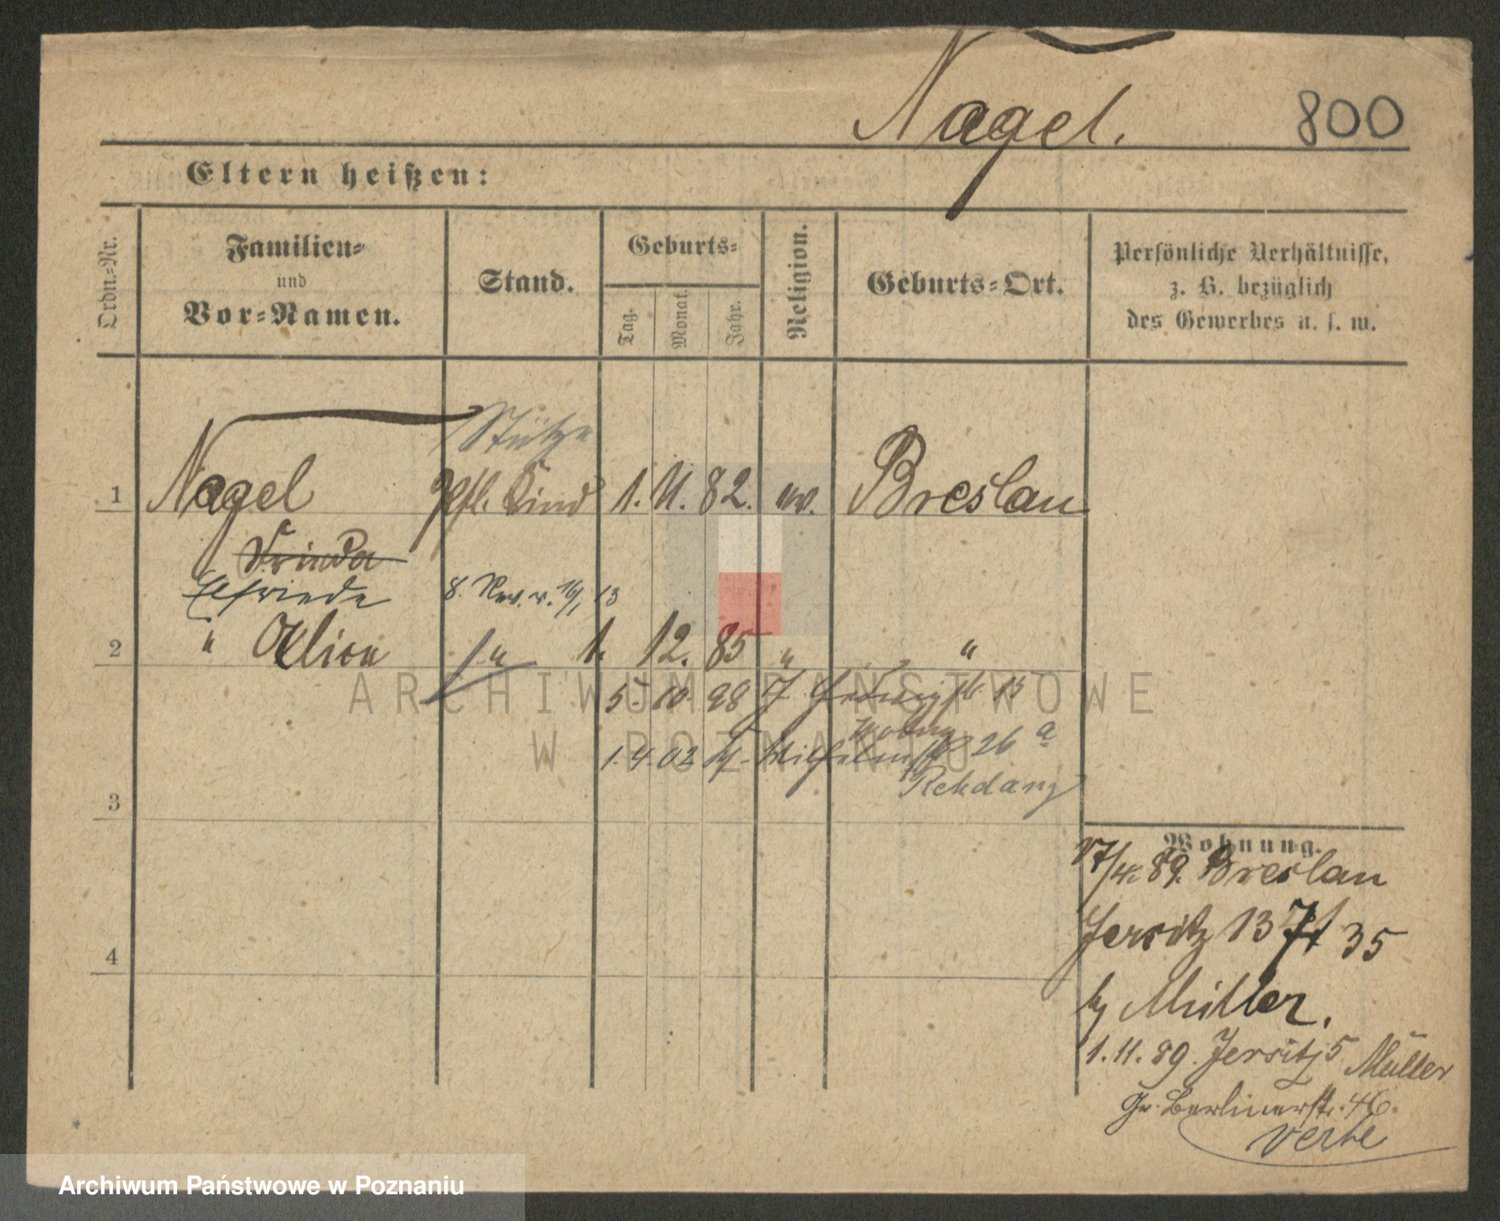 Nagel.
800
Eltern heißen:
Ordn.-Nr.
Familien-
und
Vor-Namen.
Stand.
Geburts-
Tag.
Monat.
Jahr.
Religion.
Geburts-Ort.
Persönliche Verhältnisse,
z. B. bezüglich
des Gewerbes u. s. w.
Stütze
1 Nagel Pfl. Kind 1. 11. 82. ev. Breslau
Frieda
Elfriede
2 " " 1. 12. 85 " "
5. 10. 98
1. 4. 02 26 a
3
4
Wohnung.
89. Breslau
Jersitz 137 35
Müller.
1. 11. 89. Jersitz 5 Müller
Gr. Berlinerstr. 46.
ARCHIWUM PAŃSTWOWE
W POZNANIU
Archiwum Państwowe w Poznaniu